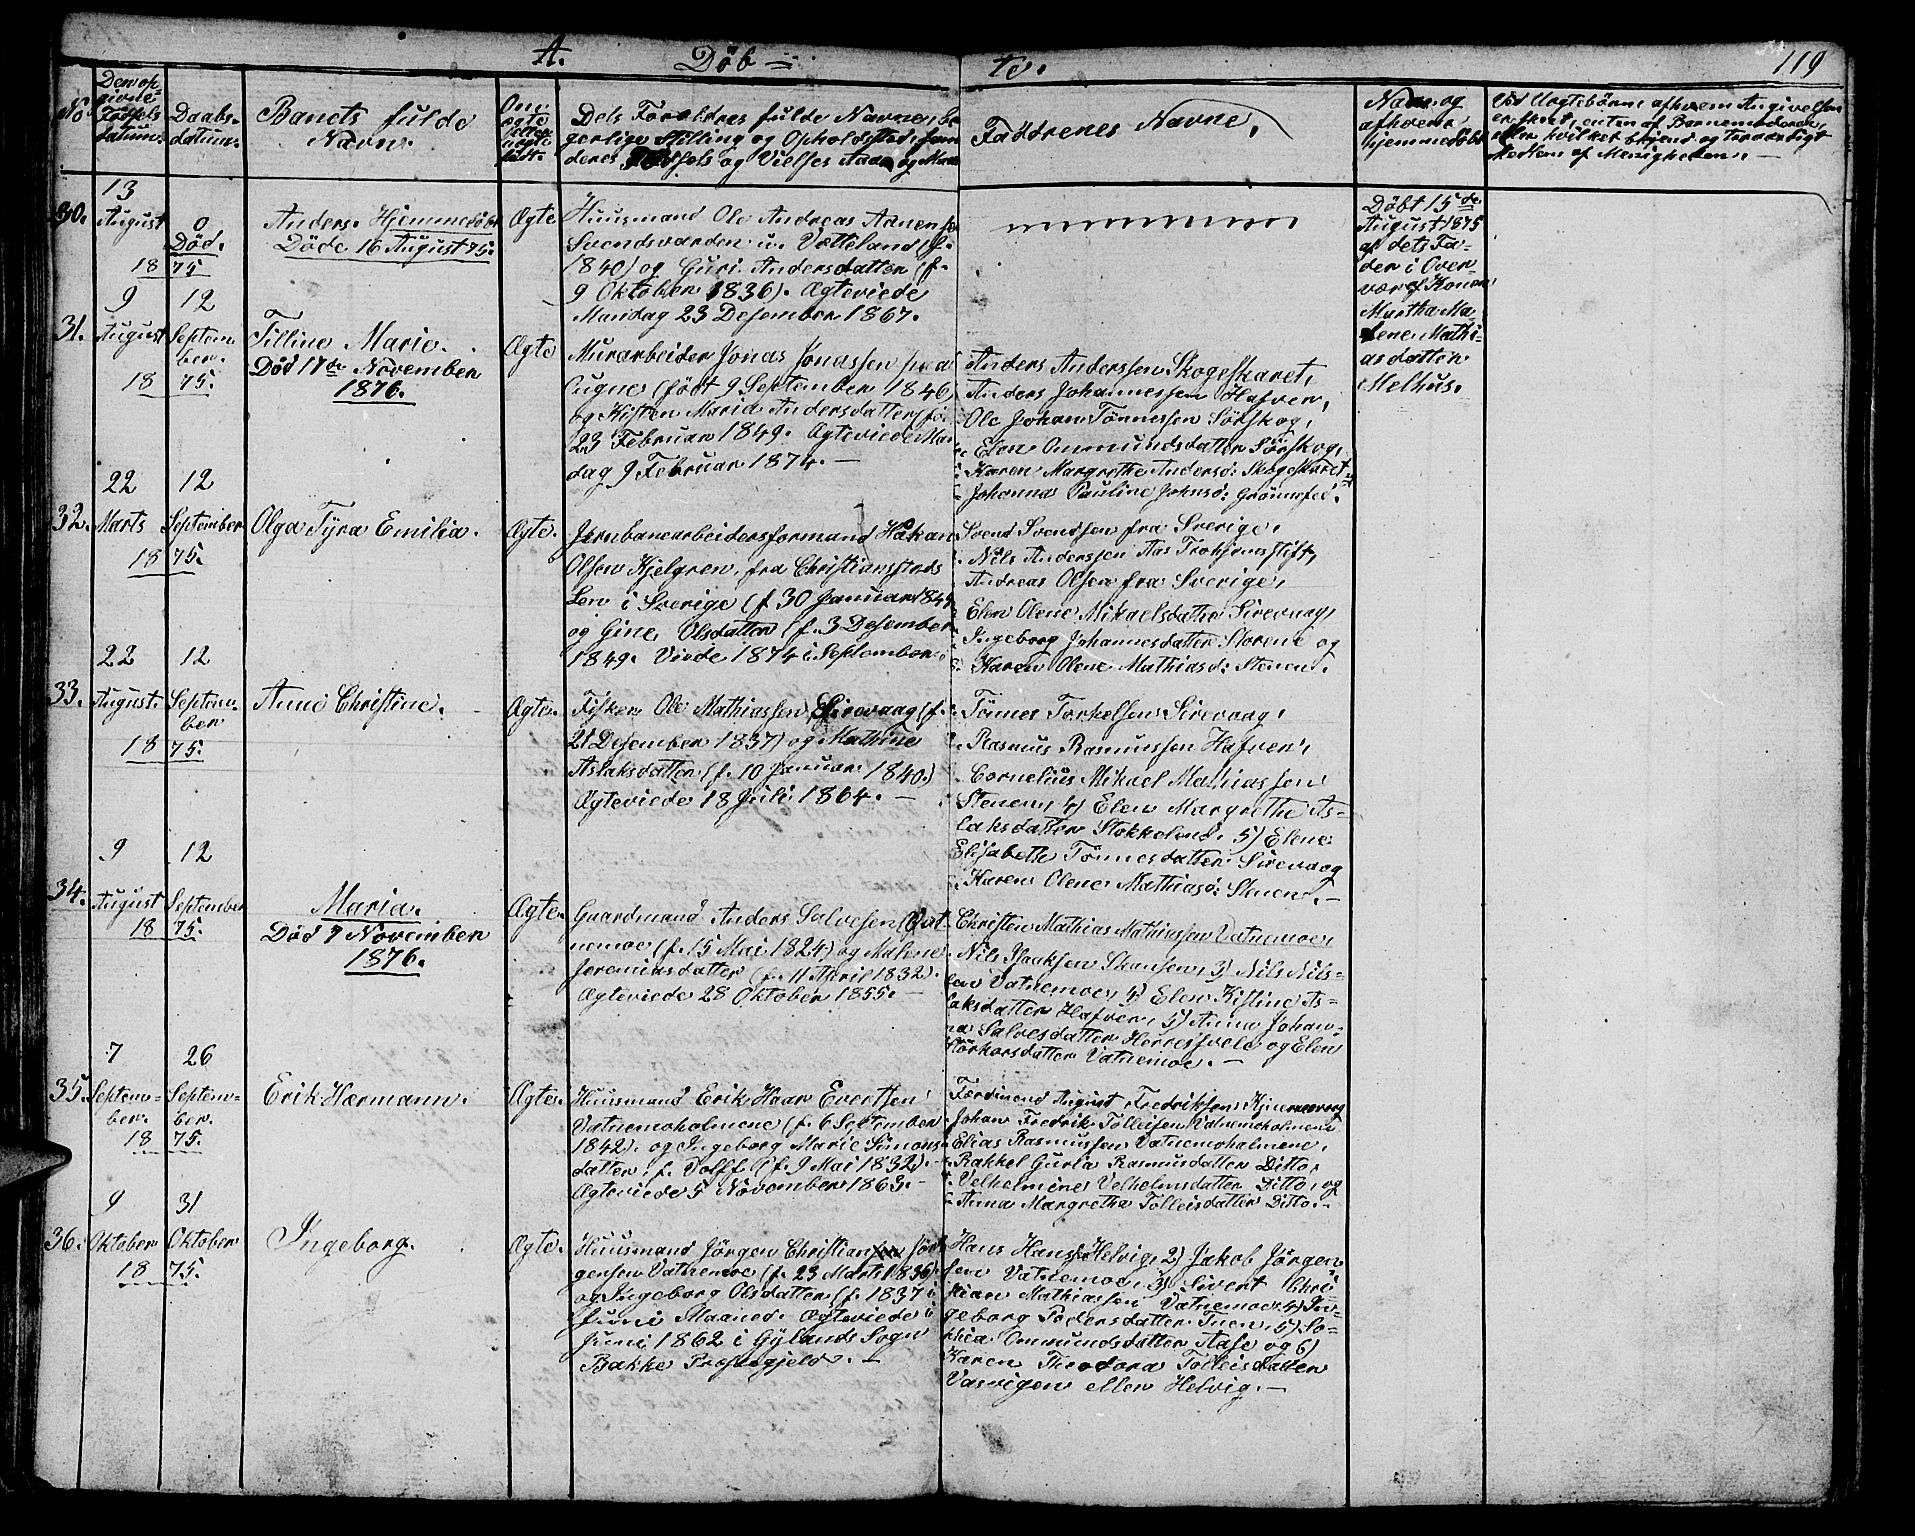 A. Døb = te. 119
No
Den op-
givne
Fødsels
datum.
Daabs-
datum.
Banets fulde
Navn.
Om
ægte
eller
uægte
født.
Dets Forældres fulde Navne, bo
gerlige Stilling og Opholdssted, sam
deres Fødsels og Vielses Aar og
Faddrenes Navne,
Naar og
af hvem
hjemmedøbt
Ved Uægtebørn: af hvem Angivelsen
er skeet, enten af Barnemoderen,
eller hvilket bekjend og troværdigt
Medlem af Menigheden. —
30.
13
August
18
0
Død.
75
Anders. Hjemmedøbt
Døde 16 August 75.
Ægte
Huusmand Ole Andreas Aanensen
Svendsvarden u. Vætteland (f.
1840) og Guri Andersdatter (f.
9 Oktober 1836). Ægteviede
Mandag 23 Desember 1867.
Døbt 15de
August 1875
af dets Fa-
der i Over-
vær af Konen
Martha Ma-
lene Mathi-
asdatter
Melhus.
31.
9
August
18
12
Septem-
ber.
75.
Tilline Marie.
Død 17de November
1876.
Ægte
Murarbeider Jonas Jonassen paa
Ougne (født 9 September 1846)
og Kisten Maria Andersdatter (fø.
23 Februar 1849. Ægteviede Man
dag 9 Februar 1874. —
Anders Anderssen Skogeskaret,
Anders Johannessen Hafven,
Ole Johan Tønnessen Sørskog,
Elen Ommundsdatter Sørskog,
Karen Margrethe Andersd: Skogeskaret
Johanna Pauline Johnsd: Grønnefed.
32.
22
Marts
18
12
September
75.
Olga Tyra Emilia.
Ægte.
Jernbanearbeidersformand Håkan
Olsen Kjelgren, fra Christianstads
Len i Sverige (f. 30 Januar 184
og Gine Olsdatter (f. 3 Desember
1849. Viede 1874 i September.
Svend Svendsen fra Sverige,
Nils Anderssen Aas Trohjemsstift,
Andreas Olsen fra Sverige,
Elen Olene Mikaelsdatter Sirevaag,
Ingeborg Johannesdatter Storene og
Karen Olene Mathiasd: Stenen.
33.
22
August.
18
12
Septem-
ber
75.
Anne Christine.
Ægte.
Fisker Ole Mathiassen Sirevaag (f.
21 Desember 1837) og Mathine
Aslaksdatter (f. 10 Januar 1840.)
Ægteviede 18 Juli 1864. —
Tønnes Torkelsen Sirevaag,
Rasmus Rasmussen Hafven,
Cornelius Mikael Mathiassen
Stenen, 4) Elen Margrethe As-
laksdatter Stokkeland, 5) Elene
Elisabeth Tønnesdatter Sirevaag
Karen Olene Mathiasd: Stenen. —
34.
9
August
18
12
September
75.
Maria.
Død 7 November
1876.
Ægte.
Gaardmand Anders Salvesen Vat
nemoe (f. 15 Mai 1824) og Malene
Jeremiasdatter (f. 11 April 1832).
Ægteviede 28 Oktober 1855. —
Christen Mathias Mathiassen Vatnemoe,
Nils Isaaksen Skansen, 3) Nils Nils-
sen Vatnemoe, 4) Elen Kistine As-
laksdatter Hafven, 5) Anna Johan-
na Salvesdatter Herresfvele og Elen
Størkersdatter Vatnemoe. —
35.
7
Septem-
ber.
18
26
Septem-
ber.
75.
Erik Harmann.
Ægte.
Huusmand Erik Haar Evertsen
Vatnemoholmene (f. 6 September
1842). og Ingeborg Marie Simons
datter, f. Volff (f. 9 Mai 1832).
Ægteviede 5 November 1863. —
Ferdinend August Fredriksen Kjinnesvaag
Johan Fredrik Tolleifsen Vatnemoholmene
Elias Rasmussen Vatnemoholmene,
Rakkel Guria Rasmusdatter Ditto,
Velhelmine Velhelmsdatter Ditto, og
Anna Margretha Tolleisdatter Ditto. —
36.
9
Oktober
18
31
Oktober
75.
Ingeborg.
Ægte.
Huusmand Jørgen Christian Jør
gensen Vatnemoe (f. 23 Marts 1836).
og Ingeborg Olsdatter (f. 1837 i
Juni Maaned. Ægteviede i
Juni 1862 i Gylands Sogn
Bakke Præstegjeld. —
Hans Hanssen Helvig, 2) Jakob Jørgen-
sen Vatnemoe, 3) Sivert Chri-
stian Mathiassen Vatnemoe 4) In-
geborg Pedersdatter Tuen, 5) So-
khia Ommundsdatter Aase og 6)
Karen Theodora Tolleisdatter
Vasvigen eller Helvig. —